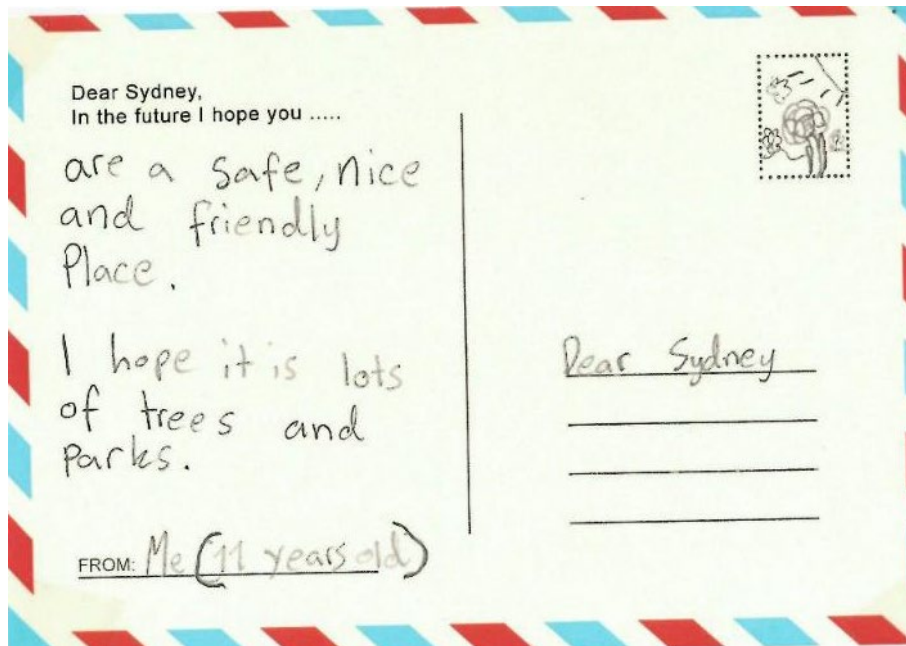 Dear Sydney,
In the future I hope you .....
are a safe, nice
and friendly
Place.
I hope it is lots
of trees and
parks.
FROM: Me (11 years old)
Dear Sydney